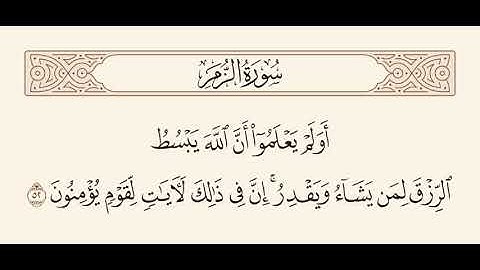 سُورَةُ الزُّمَرِ
أَوَلَمْ يَعْلَمُوٓا۟ أَنَّ ٱللَّهَ يَبْسُطُ
ٱلرِّزْقَ لِمَن يَشَآءُ وَيَقْدِرُ ۚ إِنَّ فِى ذَٰلِكَ لَـَٔايَـٰتٍ لِّقَوْمٍ يُؤْمِنُونَ ٥٢